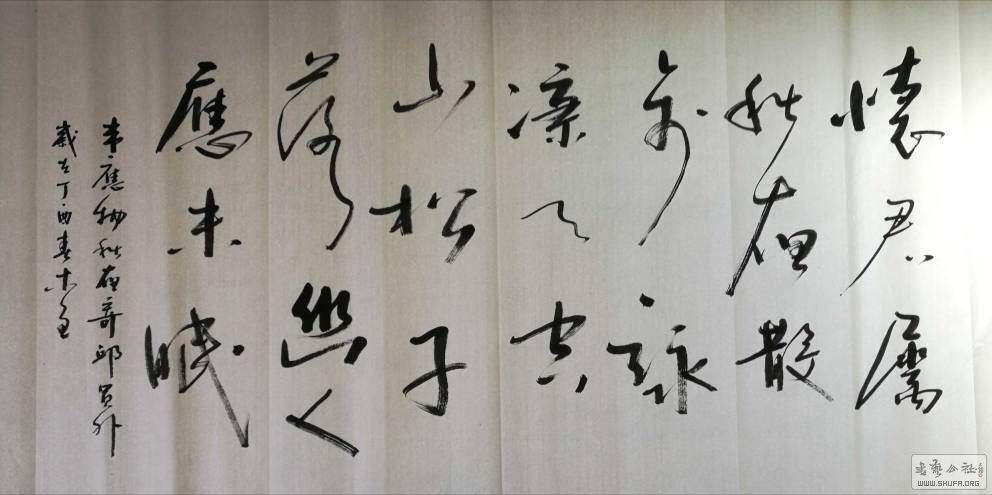 懷君屬
秋夜散
步詠
涼天空
山松子
落幽人
應未眠
韋應物秋夜寄邱員外
歲在丁酉春木
書藝公社
WWW.SHUFA.ORG